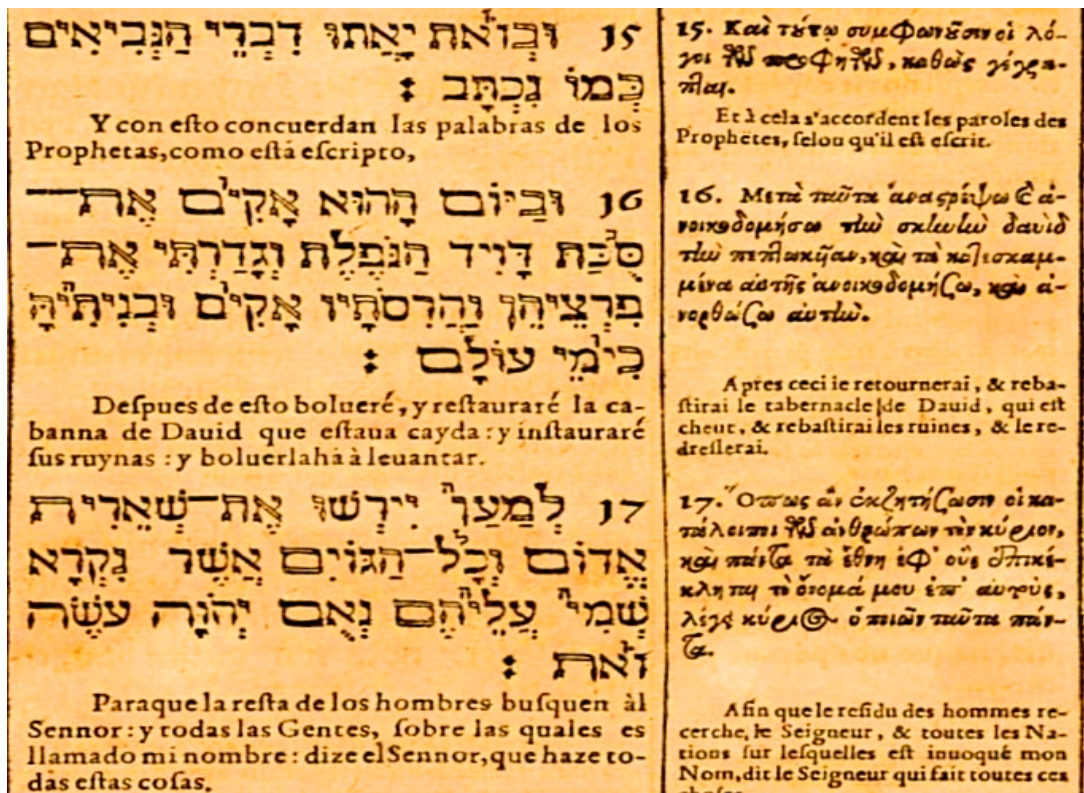 15 וּבְזֹאת יֵאָתוּ דִּבְרֵי הַנְּבִיאִים
כְּמוֹ נִכְתָּב :
Y con eſto concuerdan las palabras de los
Prophetas, como eſtá eſcripto,
16 וּבַיּוֹם הָהוּא אָקִים אֶת־
סֻכַּת דָּוִיד הַנֹּפֶלֶת וְגָדַרְתִּי אֶת־
פִּרְצֵיהֶן וַהֲרִסֹתָיו אָקִים וּבְנִיתִיהָ
כִּימֵי עוֹלָם :
Deſpues de eſto bolueré, y reſtauraré la ca-
banna de Dauid que eſtaua cayda : y inſtauraré
ſus ruynas : y boluerlahá à leuantar.
17 לְמַעַן יִירְשׁוּ אֶת־שְׁאֵרִית
אֱדוֹם וְכָל־הַגּוֹיִם אֲשֶׁר נִקְרָא
שְׁמִי עֲלֵיהֶם נְאֻם יְהֹוָה עֹשֶׂה
זֹאת :
Paraque la reſta de los hombres buſquen àl
Sennor : y todas las Gentes, ſobre las quales es
llamado mi nombre : dize el Sennor, que haze to-
das eſtas coſas.
15. Καὶ τούτῳ συμφωνοῦσιν οἱ λό-
γοι τῶν προφητῶν, καθὼς γέγρα-
πται.
Et à cela s'accordent les paroles des
Prophetes, ſelon qu'il eſt eſcrit.
16. Μετὰ ταῦτα ἀναστρέψω καὶ ἀ-
νοικοδομήσω τὴν σκηνὴν δαυὶδ
τὴν πεπτωκυῖαν, καὶ τὰ κατεσκαμ-
μένα αὐτῆς ἀνοικοδομήσω, καὶ ἀ-
νορθώσω αὐτήν.
Apres ceci ie retournerai, & reba-
ſtirai le tabernacle de Dauid, qui eſt
cheut, & rebaſtirai les ruines, & le re-
dreſſerai.
17. Ὅπως ἂν ἐκζητήσωσιν οἱ κα-
τάλοιποι τῶν ἀνθρώπων τὸν κύριον,
καὶ πάντα τὰ ἔθνη ἐφ' οὓς ἐπικέ-
κληται τὸ ὄνομά μου ἐπ' αὐτούς,
λέγει κύριος ὁ ποιῶν ταῦτα πάν-
τα.
Afin que le reſidu des hommes re-
cerche, le Seigneur, & toutes les Na-
tions ſur leſquelles eſt inuoqué mon
Nom, dit le Seigneur qui fait toutes ces